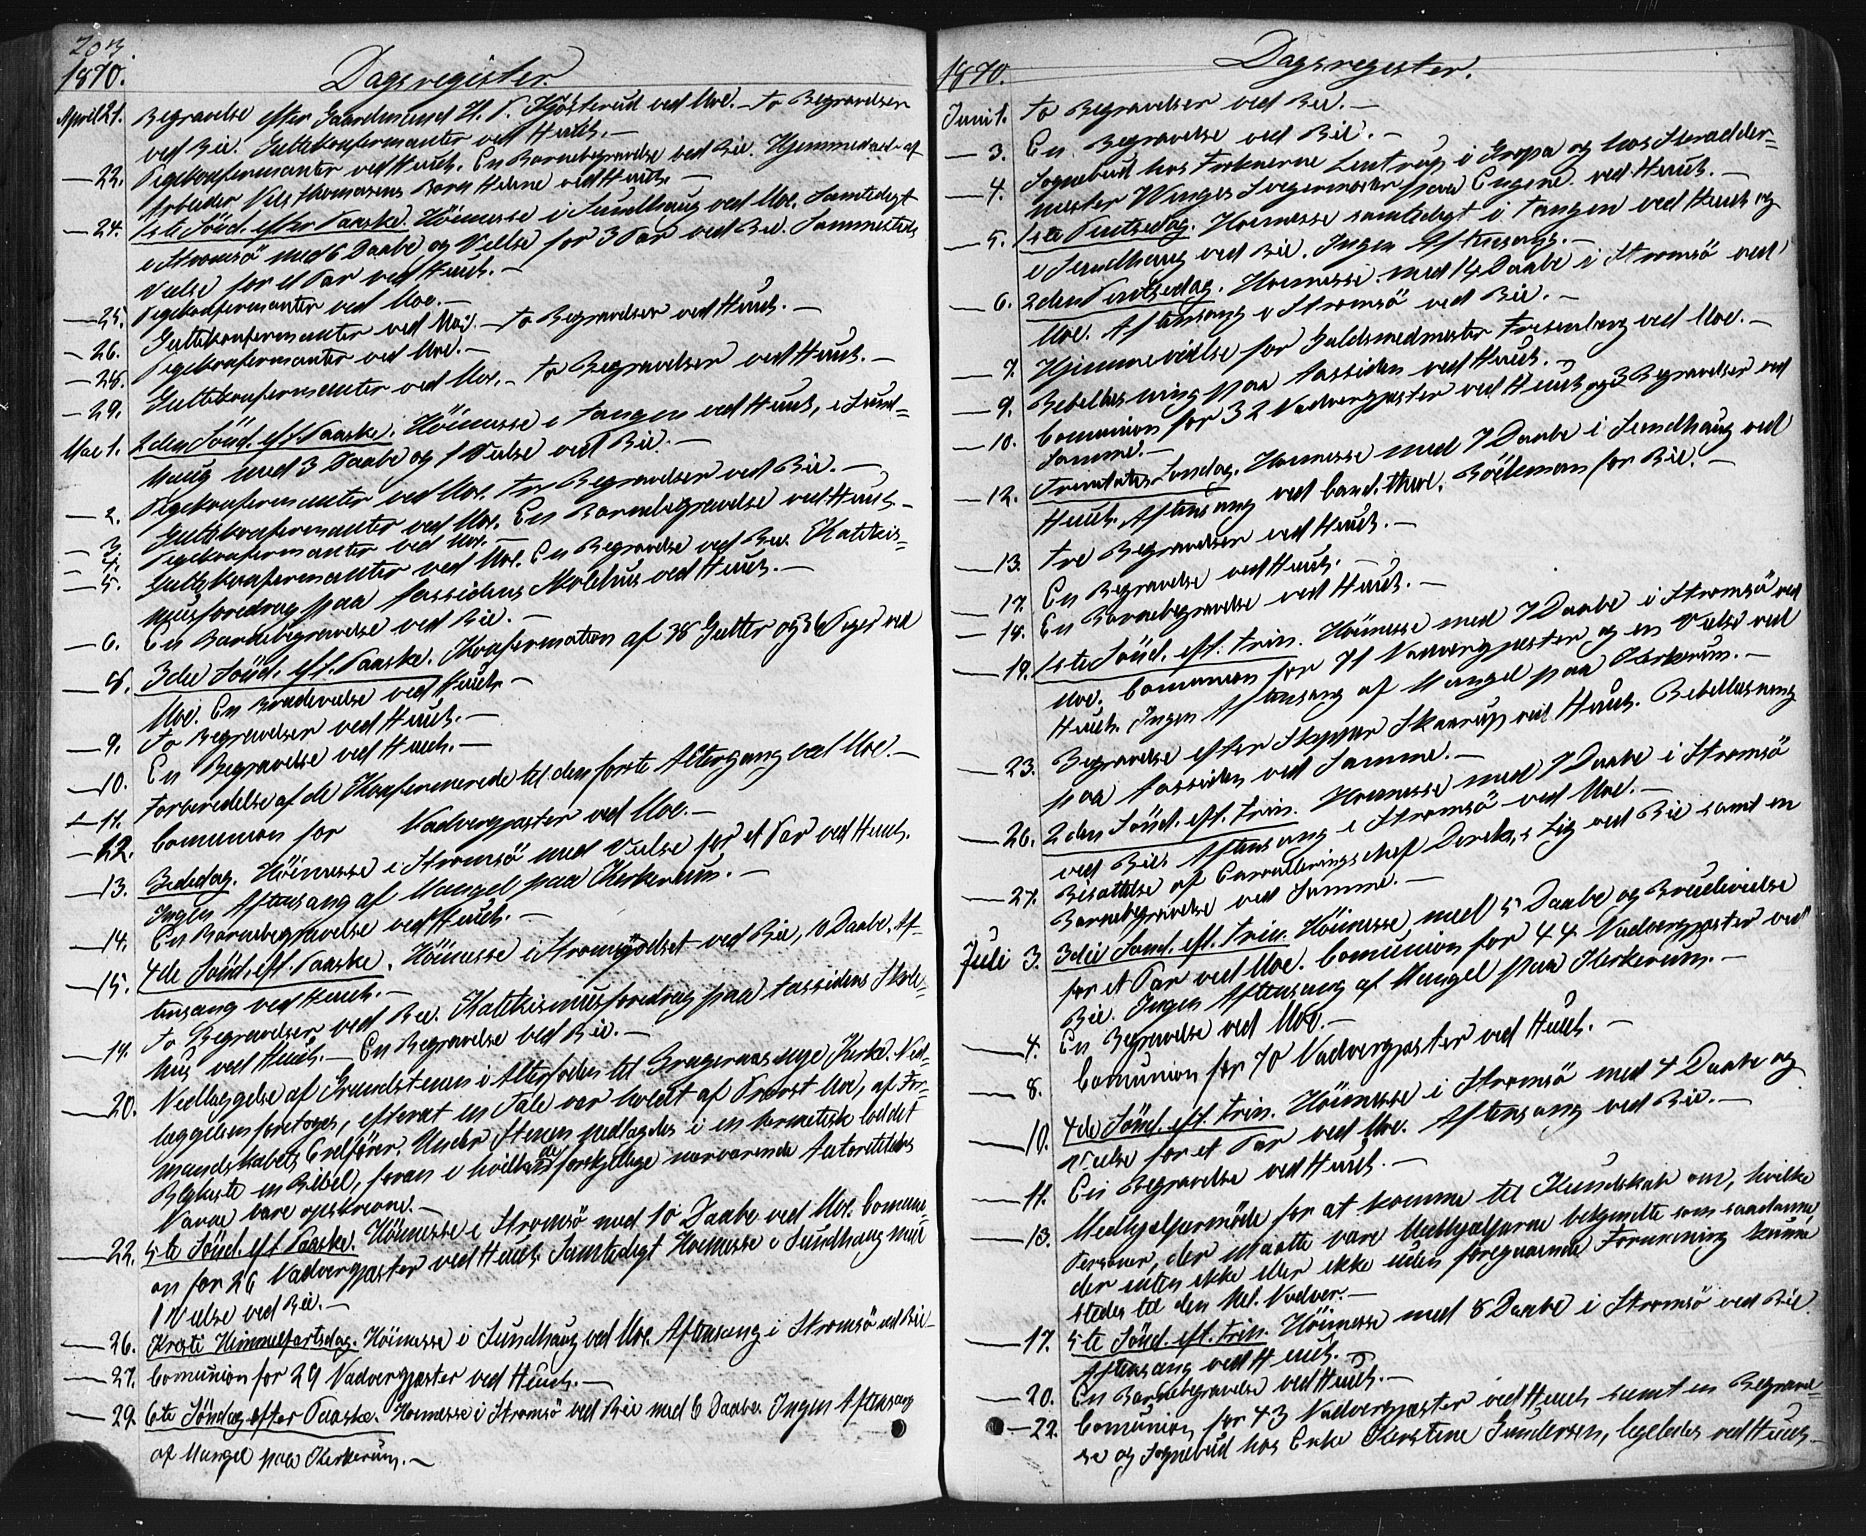 203
1870. Dagsregister.
April 21. Begravelse efter Gaardmand H. P. ved Moe. – To Begravelser
ved Bie. Guttekonfermanter ved Hauch. –
— 22. Pigekonfermanter ved Hauch. En Barnebegravelse ved Bie. Hjemmedaab af
Arbeider Nils Thomasens Barn Helene ved Hauch. –
— 24. 1ste Sönd. efter Paaske. Höimesse i Sundhaug ved Moe. Samtidigt
i Strömsö med 6 Daabe og Vielse for 3 Par ved Bie. Sammesteds
Vielse for et Par ved Hauch. –
— 25. Pigekonfermanter ved Moe. –
— 26. Guttekonfermanter ved Moe. – To Begravelser ved Hauch. –
— 28. Pigekonfermanter ved Moe. –
— 29. Guttekonfermanter ved Moe. – To Begravelser ved Hauch. –
Mai 1. 2den Sönd. eft. Paaske. Höimesse i Tangen ved Hauch, i Sund-
haug med 3 Daabe og 1 Vielse ved Bie. –
— 2. Pigekonfermanter ved Moe. Tre Begravelser ved Bie. –
— 3. Guttekonfermanter ved Moe. En Barnebegravelse ved Hauch. –
— 4. Pigekonfermanter ved Moe. –
— 5. Guttekonfermanter ved Moe. En Begravelse ved Bie. Katekis-
musforedrag paa Tassidens Skolehus ved Hauch. –
— 6. En Barnebegravelse ved Bie. –
— 8. 3die Sönd. eft. Paaske. Konfermation af 38 Gutter og 36 Piger ved
Moe. En Brudevielse ved Hauch. –
— 9. To Begravelser ved Hauch. –
— 10. En Begravelse ved Hauch. –
— 11. Forberedelse af de Konfermerede til den förste Altergang ved Moe. –
— 12. Comunion for Nadvergjæster ved Moe. –
— 13. Bededag. Höimesse i Strömsö med Vielse for et Par ved Hauch.
Ingen Aftensang af Mangel paa Kirkerum. –
— 14. En Barnebegravelse ved Hauch. –
— 15. 4de Sönd. eft. Paaske. Höimesse i Strömsö ved Bie, 10 Daabe. Af-
tensang ved Hauch. –
— 19. To Begravelser ved Bie. Katekismusforedrag paa Tassidens Skole-
hus ved Hauch. – En Begravelse ved Bie. –
— 20. Nedlæggelse af Grundstenen i Alterfoden til Bragernæs nye Kirke. Ned-
læggelsen foretoges, efterat en Tale var holdt af Provst Moe, af For-
mandskabets Ordförer. Under Stenen nedlagdes i en hermetisk loddet
Blykiste en Bibel, foran i hvilken de forskjellige nærværende Autoriteters
Navne vare opskrevne. –
— 22. 5te Sönd. eft. Paaske. Höimesse i Strömsö med 10 Daabe ved Moe. Comuni-
on for 26 Nadvergjæster ved Hauch. Samtidigt Höimesse i Sundhaug med
1 Vielse ved Bie. –
— 26. Kristi Himmelfartsdag. Höimesse i Sundhaug ved Moe. Aftensang i Strömsö ved Bie –
— 27. Comunion for 29 Nadvergjæster ved Hauch. –
— 29. 6te Söndag efter Paaske. Höimesse i Strömsö ved Bie med 6 Daabe. Ingen Aftensang
af Mangel paa Kirkerum. –
1870. Dagsregister.
Juni 1. To Begravelser ved Bie. –
— 3. En Begravelse ved Bie. –
— 4. Sognebud hos Fröknerne Lentrup i Gropa og hos Skrædder-
mester Winges Svigermoster paa Engene ved Hauch. –
— 5. 1ste Pintsedag. Höimesse samtidigt i Tangen ved Hauch og
i Sundhaug ved Bie. Ingen Aftensang. –
— 6. 2den Pintsedag. Höimesse med 14 Daabe i Strömsö ved
Moe. Aftensang i Strömsö ved Bie. –
— 7. Hjemmevielse for Guldsmedmester Fresenberg ved Moe. –
— 9. Bibellæsning paa Tassiden ved Hauch. –
— 10. Comunion for 32 Nadvergjæster ved Hauch og 3 Begravelser ved
Samme. –
— 12. Trinitatis Söndag. Höimesse med 7 Daabe i Sundhaug ved
Hauch. Aftensang ved Cand. theol. Böckman for Bie. –
— 13. Tre Begravelser ved Hauch. –
— 17. En Begravelse ved Hauch. –
— 18. En Barnebegravelse ved Hauch. –
— 19. 1ste Sönd. eft. Trin. Höimesse med 7 Daabe i Strömsö ved
Moe. Comunion for 71 Nadvergjæster og en Vielse ved
Hauch. Ingen Aftensang af Mangel paa Kirkerum. –
— 23. Begravelse efter Skipper Skaarup ved Hauch. Bibellæsning
paa Tassiden ved Samme. –
— 26. 2den Sönd. eft. Trin. Höimesse med 7 Daabe i Strömsö
ved Bie. Aftensang i Strömsö ved Moe. –
— 27. Bisættelse af Lig ved Bie samt en
Barnebegravelse ved Samme. –
Juli 3. 3die Sönd. eft. Trin. Höimesse med 5 Daabe og Brudevielse
for et Par ved Moe. Comunion for 44 Nadvergjæster ved
Bie. Ingen Aftensang af Mangel paa Kirkerum. –
— 4. En Begravelse ved Moe. –
— 8. Comunion for 70 Nadvergjæster ved Hauch. –
— 10. 4de Sönd. eft. Trin. Höimesse i Strömsö med 4 Daabe og
Vielse for et Par ved Moe. Aftensang ved Bie. –
— 11. En Begravelse ved Hauch. –
— 13. Medhjælpermöde for at komme til Kundskab om, hvilke
Personer, der maatte være Medhjælperne bekjendte som saadanne,
der enten ikke eller ikke uden foregaaende Formaning kunne
stedes til den hel. Nadver. –
— 17. 5te Sönd. eft. Trin. Höimesse med 8 Daabe i Strömsö ved Bie.
Aftensang ved Hauch. –
— 20. En Barnebegravelse ved Hauch. –
— 22. Comunion for 43 Nadvergjæster ved Hauch samt en Begravel-
se og Sognebud hos Enke Kirstine Gundersen, ligeledes ved Hauch –